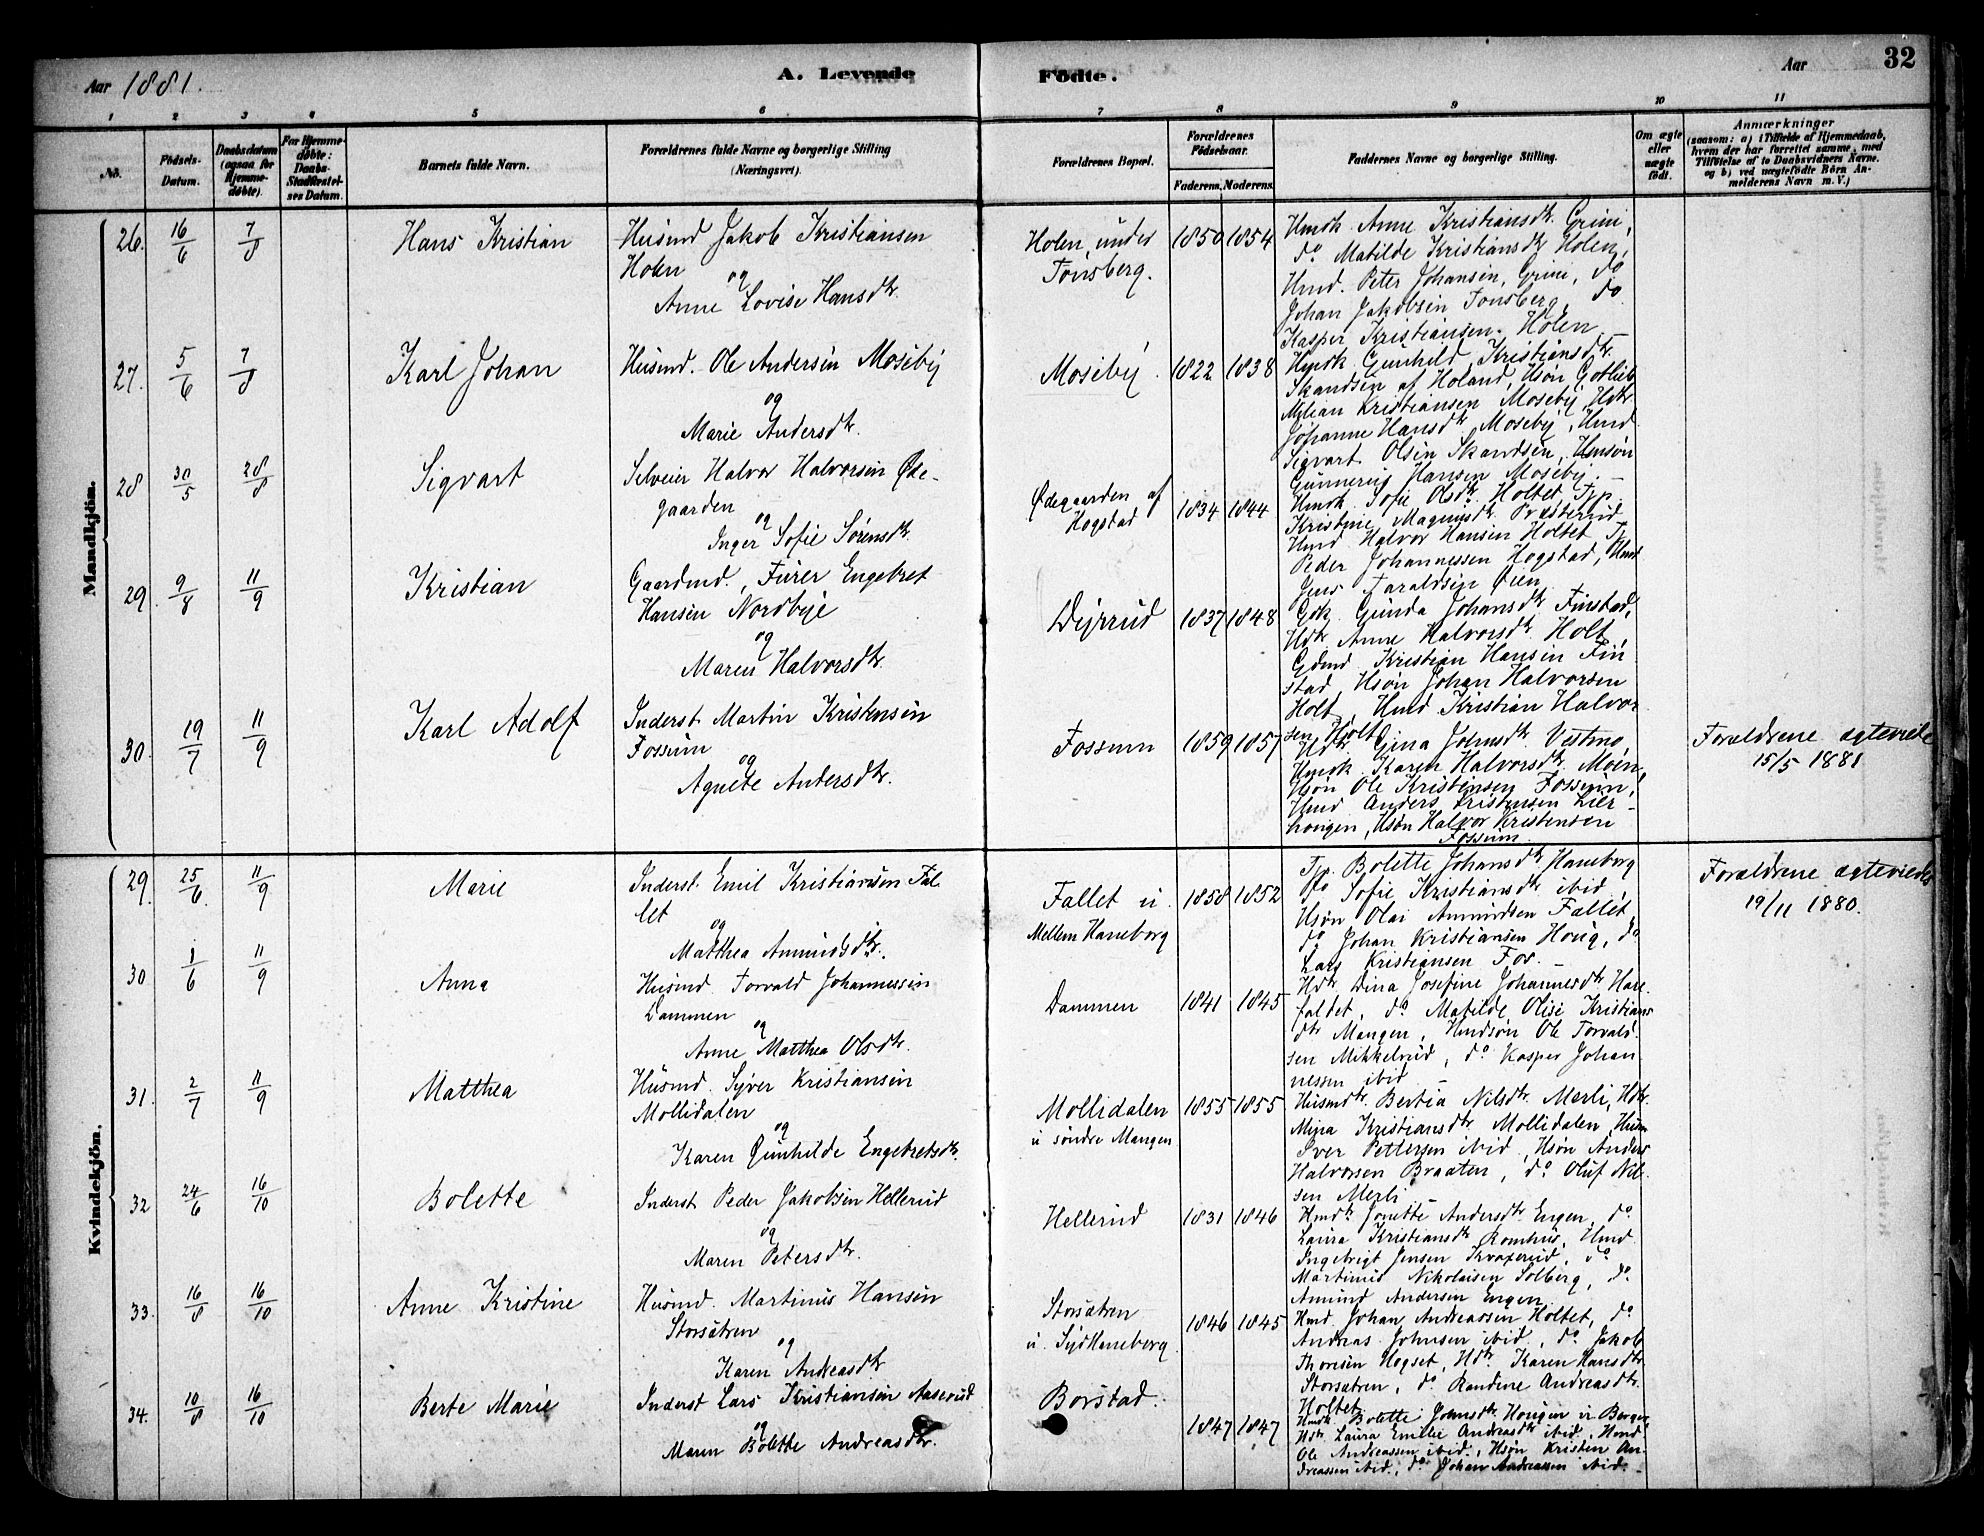 Aar 1881.
A. Levende
Fødte.
Aar
32
1 2 3 4 5 6 7 8 9 10 11
No.
Födsels-
Datum.
Daabsdatum
(ogsaa for
Hjemme-
døbte).
For Hjemme-
döbte:
Daabs-
Stadfæstel-
ses Datum.
Barnets fulde Navn.
Forældrenes fulde Navne og borgerlige Stilling
(Næringsvei).
Forældrenes Bopæl.
Forældrenes
Födselsaar.
Faderens. Moderens.
Faddernes Navne og borgerlige Stilling.
Om ægte
eller
uægte
født.
Anmærkninger
(saasom: a) i Tilfælde af Hjemmedaab,
hvem der har forrettet samme, med
Tilföielse af to Daabsvidners Navne.
og b) ved uægtefödte Börn An-
melderens Navn m. V.)
Mandkjön.
26. 16/6 7/8 Hans Kristian
Husmd Jakob Kristiansen
Holen
og
Anne Lovise Hansdtr.
Holen under
Tonsberg.
1850 1854
Hmdk Anne Kristiansdtr. Grini,
do Matilde Kristiansdtr Holen,
Hmd. Peter Johansen, Grini, do
Johan Jakobsen Tonsberg, do
Kasper Kristiansen Holen
27. 5/6 7/8 Karl Johan
Husmd. Ole Andersen Mosebÿ
og
Marie Andersdtr.
Mosebÿ.
1822 1838
Hmdk Gunhild Kristiansdtr.
Skandsen af Holand, Hsøn Gotlieb
Milian Kristiansen Mosebÿ, Hdtr
Johanne Hansdtr Mosebÿ, Hmd
Sigvart Olsen Skandsen, Hmsøn
Gunnerius Hansen Mosebÿ.
28 30/5 28/8 Sigvart
Selveier Halvor Halvorsen Øde-
gaarden
og
Inger Sofie Sørensdtr.
Ødegaarden af
Hogstad
1834 1844
Hmdk Sofie Olsdtr. Holtet, Tjp.
Kristine Magnusdtr Præsterud
Hmd Halvor Hansen Holtet, Tj.
Peder Johannessen Hogstad, Hmd
Jens Taraldsen Øien
29. 9/8 11/9 Kristian
Gaardmd, Furer Engebret
Hansen Nordbye
og
Maren Halvorsdtr.
1837 1848
Gdk. Gunda Johansdtr Finstad,
Hdtr Anne Halvorsdtr. Holt,
Gdmd. Kristian Hansen Fin
stad, Hsøn Johan Halvorsen
Holt, Hmd Kristian Halvor
sen Holt
30. 19/7 11/9 Karl Adolf
Inderst. Martin Kristensen
Fossum
og
Agnete Andersdtr.
Fossum
1859 1857
Hdtr Gina Johnsdtr. Vestmo,
Hmdk. Karen Halvorsdtr. Moen,
Hsøn Ole Kristensen Fossum,
Hmd Anders Kristensen Lier-
hougen, Hsøn Halvor Kristensen
Fossum
Forældrene egteviede
15/5 1881
Kvindekjön.
29. 25/6 11/9 Marie
Inderst. Emil Kristiansen Fal
let
og
Matthea Amundsdtr.
Fallet u.
Mellem Haneborg
1858 1852
Tjp. Bolette Johansdtr. Haneborg
do Sofie Kristiansdtr. ibid
Hsøn Olai Amundsen Fallet
do Johan Kristiansen Houg, do
Lars Kristiansen Fos.
Forældrene egteviede
19/11 1880.
30 1/6 11/9 Anna
Husmd. Torvald Johannessen
Dammen
og
Anne Matthea Olsdtr.
Dammen
1841 1845
Hdtr Dina Josefine Johannesdtr Hare
faldet, do Matilde Olise Kristians
dtr Mangen, Hmdsøn Ole Torvald
sen Mikkelrud, do Kasper Johan
nessen ibid
31. 2/7 11/9 Matthea
Husmd. Syver Kristiansen
Mollidalen
og
Karen Gunhilde Engebretsdtr.
Mollidalen
u søndre Mangen
1855 1855
Husmdtr. Bertia Nilsdtr Merli, Hdtr.
Mina Kristiansdtr Mollidalen, Husm
Iver Pettersen ibid, Hsøn Anders
Halvorsen Braaten, do Oluf Nil
sen Merli
32 24/6 16/10 Bolette
Inderst Peder Jakobsen Hellerud
og
Maren Petersdtr.
Hellerud
1831 1846
Hmdtr Jonette Andersdtr. Engen, do
Laura Kristiansdtr Romhus, Hmd
Ingebrigt Jensen, do
Martinus Nikolaisen Solberg, do
Amund Andersen Engen
33. 16/8 16/10 Anne Kristine
Husmd. Martinus Hansen
Storsætren
og
Karen Andreasdtr
Storsætren
u. Syd Haneborg
1846 1845
Hmd. Johan Andreassen Holtet, do
Andreas Johnsen ibid, do Jakob
Thoresen Hogset, Hdtr. Karen Hansdtr.
Storsætren, do Randine Andreasdtr.
Holtet
34. 10/8 16/10 Berte Marie
Inderst Lars Kristiansen Aaserud
og
Maren Bolette Andreasdtr.
Borstad.
1847 1847
Hmdk. Bolette Johnsdtr. Hougen u Berger,
Hdtr. Laura Emilie Andreasdtr ibid, Hmd
Ole Andreassen ibid, Hsøn Kristen An-
dreassen ibid., do Johan Andreassen ibid.